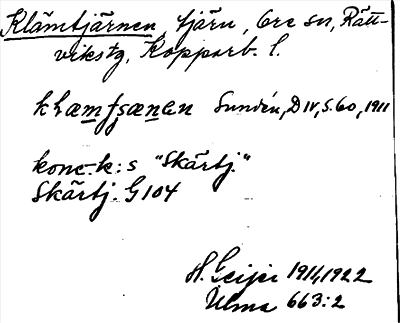 Klämtjärnen, tjärn, Ore sn, Rätt-
vikstg, Kopparb. l.
klæmʃænen Sundén, D IV, S. 60, 1911
konc.-k:s "Skärtj."
Skärtj. G 104
H. Geijer 1914, 1922
Ulma 663:2